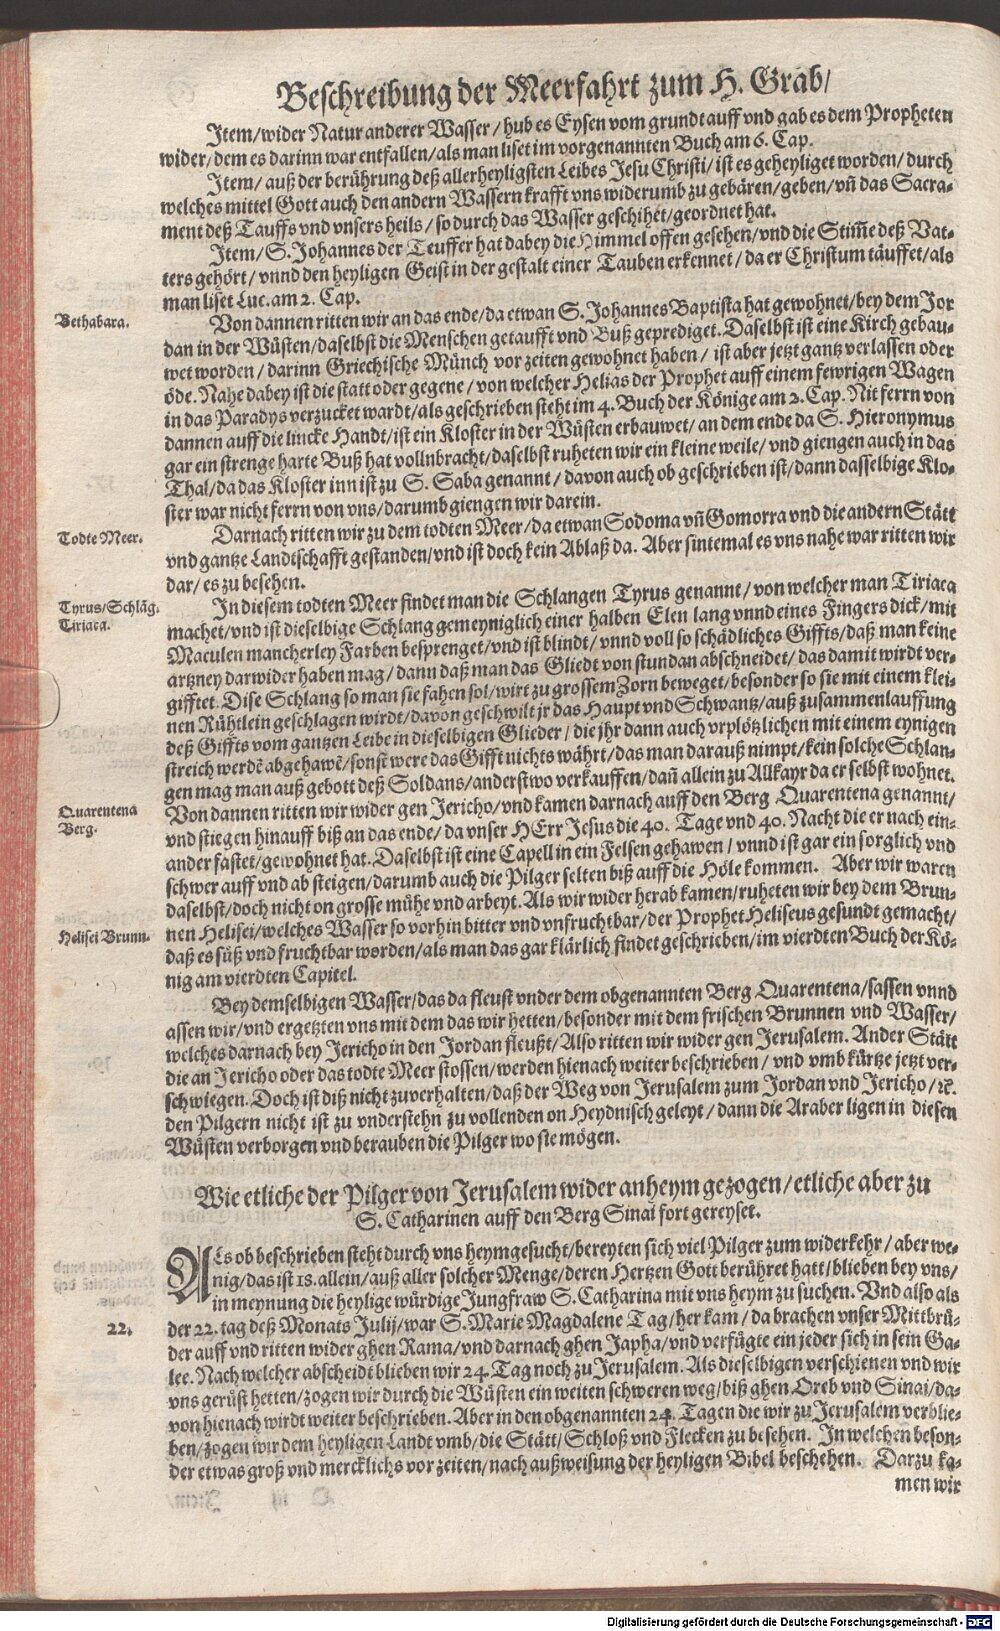 Beschreibung der Meerfahrt zum H. Grab/
Item/wider Natur anderer Wasser/hub es Eysen vom grundt auff vnd gab es dem Propheten
wider/dem es darinn war entfallen/als man liset im vorgenannten Buch am 6. Cap.
Item/auß der berührung deß allerheyligsten Leibes Jesu Christi/ist es geheyliget worden/durch
welches mittel Gott auch den andern Wassern krafft vns widerumb zu gebären/geben/vñ das Sacra-
ment deß Tauffs vnd vnsers heils/so durch das Wasser geschihet/geordnet hat.
Item/S. Johannes der Teuffer hat dabey die Himmel offen gesehen/vnd die Stim̃e deß Vat-
ters gehört/vnnd den heyligen Geist in der gestalt einer Tauben erkennet/da er Christum täuffet/als
man liset Luc. am 2. Cap.
Bethabara.
Von dannen ritten wir an das ende/da etwan S. Johannes Baptista hat gewohnet/bey dem Jor
dan in der Wüsten/daselbst die Menschen getaufft vnd Buß geprediget. Daselbst ist eine Kirch gebau-
wet worden/darinn Griechische Münch vor zeiten gewohnet haben/ist aber jetzt gantz verlassen oder
öde. Nahe dabey ist die statt oder gegene/von welcher Helias der Prophet auff einem fewrigen Wagen
in das Paradys verzucket wardt/als geschrieben steht im 4. Buch der Könige am 2. Cap. Nit ferrn von
dannen auff die lincke Handt/ist ein Kloster in der Wüsten erbauwet/an dem ende da S. Hieronymus
gar ein strenge harte Buß hat vollnbracht/daselbst ruheten wir ein kleine weile/vnd giengen auch in das
Thal/da das Kloster inn ist zu S. Saba genannt/davon auch ob geschrieben ist/dann dasselbige Klo-
ster war nicht ferrn von vns/darumb giengen wir darein.
Todte Meer.
Darnach ritten wir zu dem todten Meer/da etwan Sodoma vñ Gomorra vnd die andern Stätt
vnd gantze Landtschafft gestanden/vnd ist doch kein Ablaß da. Aber sintemal es vns nahe war ritten wir
dar/es zu besehen.
Tyrus/Schläg.
Tiriaca.
In diesem todten Meer findet man die Schlangen Tyrus genannt/von welcher man Tiriaca
machet/vnd ist dieselbige Schlang gemeyniglich einer halben Elen lang vnnd eines Fingers dick/mit
Maculen mancherley Farben besprenget/vnd ist blindt/vnnd voll so schädliches Giffts/daß man keine
artzney darwider haben mag/dann daß man das Gliedt von stundan abschneidet/das damit wirdt ver-
gifftet. Dise Schlang so man sie fahen sol/wirt zu grossem Zorn beweget/besonder so sie mit einem klei-
nen Rühtlein geschlagen wirdt/davon geschwilt jr das Haupt vnd Schwantz/auß zusammenlauffung
deß Giffts vom gantzen Leibe in dieselbigen Glieder/die jhr dann auch vrplötzlichen mit einem eynigen
streich werdē abgehawē/sonst were das Gifft nichts währt/das man darauß nimpt/kein solche Schlan-
gen mag man auß gebott deß Soldans/anderstwo verkauffen/dañ allein zu Allkayr da er selbst wohnet.
Quarentena
Berg.
Von dannen ritten wir wider gen Jericho/vnd kamen darnach auff den Berg Quarentena genannt/
vnd stiegen hinauff biß an das ende/da vnser HErr Jesus die 40. Tage vnd 40. Nacht die er nach ein-
ander fastet/gewohnet hat. Daselbst ist eine Capell in ein Felsen gehawen/vnnd ist gar ein sorglich vnd
schwer auff vnd ab steigen/darumb auch die Pilger selten biß auff die Höle kommen. Aber wir waren
daselbst/doch nicht on grosse mühe vnd arbeyt. Als wir wider herab kamen/ruheten wir bey dem Brun-
Helisei Brunn.
nen Helisei/welches Wasser so vorhin bitter vnd vnfruchtbar/der Prophet Heliseus gesundt gemacht/
daß es süß vnd fruchtbar worden/als man das gar klärlich findet geschrieben/im vierdten Buch der Kö-
nig am vierdten Capitel.
Bey demselbigen Wasser/das da fleust vnder dem obgenannten Berg Quarentena/sassen vnnd
assen wir/vnd ergetzten vns mit dem das wir hetten/besonder mit dem frischen Brunnen vnd Wasser/
welches darnach bey Jericho in den Jordan fleußt/Also ritten wir wider gen Jerusalem. Ander Stätt
die an Jericho oder das todte Meer stossen/werden hienach weiter beschrieben/vnd vmb kürtze jetzt ver-
schwiegen. Doch ist diß nicht zuverhalten/daß der Weg von Jerusalem zum Jordan vnd Jericho/ꝛc.
den Pilgern nicht ist zu vnderstehn zu vollenden on Heydnisch geleyt/dann die Araber ligen in diesen
Wüsten verborgen vnd berauben die Pilger wo sie mögen.
Wie etliche der Pilger von Jerusalem wider anheym gezogen/etliche aber zu
S. Catharinen auff den Berg Sinai fort gereyset.
ALs ob beschrieben steht durch vns heymgesucht/bereyten sich viel Pilger zum widerkehr/aber we-
nig/das ist 18. allein/auß aller solcher Menge/deren Hertzen Gott berühret hatt/blieben bey vns/
in meynung die heylige würdige Jungfraw S. Catharina mit vns heym zu suchen. Vnd also als
22.
der 22. tag deß Monats Julij/war S. Marie Magdalene Tag/her kam/da brachen vnser Mittbrü-
der auff vnd ritten wider ghen Rama/vnd darnach ghen Japha/vnd verfügte ein jeder sich in sein Ga-
lee. Nach welcher abscheidt blieben wir 24. Tag noch zu Jerusalem. Als dieselbigen verschienen vnd wir
vns gerüst hetten/zogen wir durch die Wüsten ein weiten schweren weg/biß ghen Oreb vnd Sinai/da-
von hienach wirdt weiter beschrieben. Aber in den obgenannten 24. Tagen die wir zu Jerusalem verblie-
ben/zogen wir dem heyligen Landt vmb/die Stätt/Schloß vnd Flecken zu besehen. In welchen beson-
der etwas groß vnd mercklichs vor zeiten/nach außweisung der heyligen Bibel beschehen. Darzu ka-
men wir
Digitalisierung gefördert durch die Deutsche Forschungsgemeinschaft - DFG